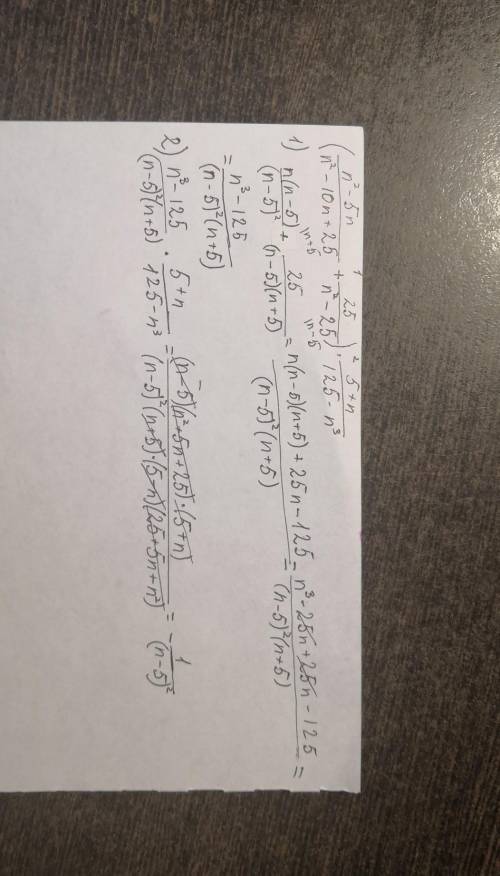 (n²-5n / n²-10n+25 + 25 / n²-25) · 5+n / 125-n³
1) n(n-5) / (n-5)² + 25 / (n-5)(n+5) = n(n-5)(n+5)+25n-125 / (n-5)²(n+5) = n³-25n+25n-125 / (n-5)²(n+5) =
= n³-125 / (n-5)²(n+5)
2) n³-125 / (n-5)²(n+5) · 5+n / 125-n³ = (n-5)(n²+5n+25)·(5+n) / (n-5)²(n+5)·(5-n)(25+5n+n²) = - 1 / (n-5)²